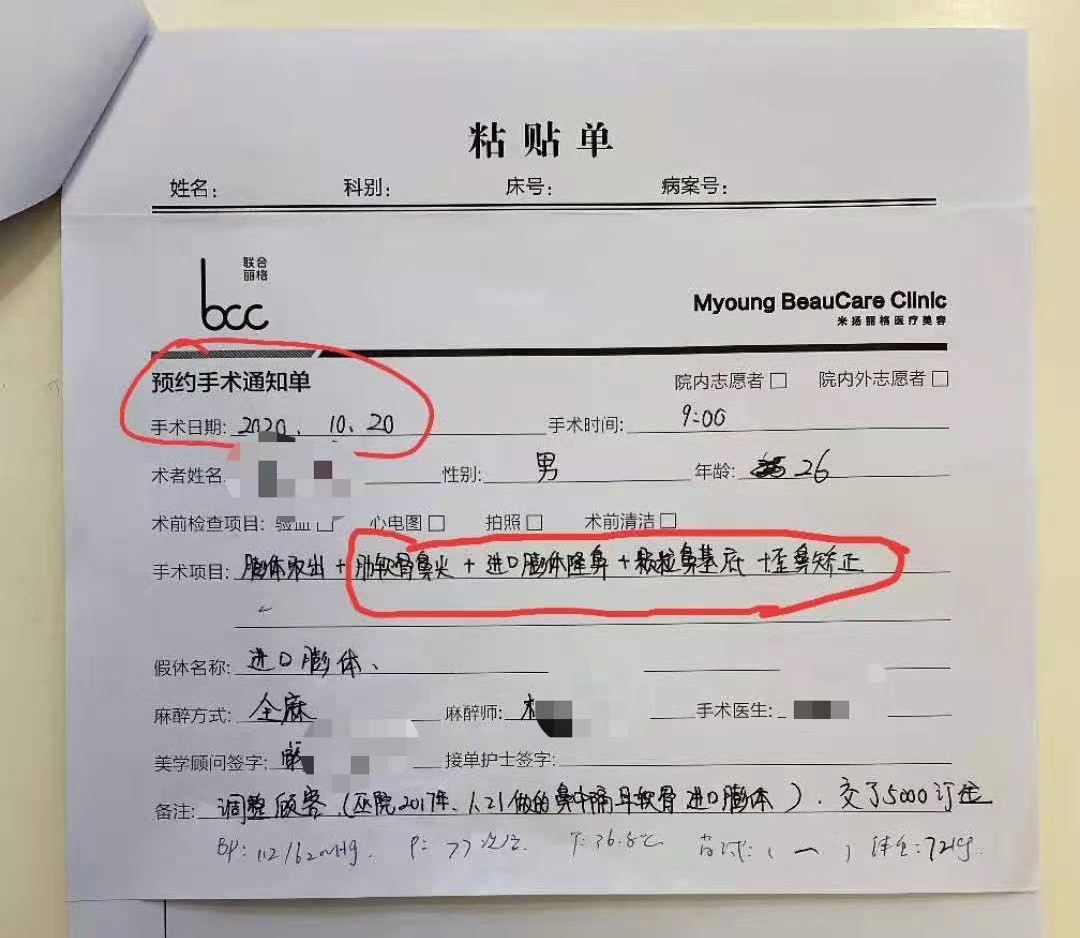 粘贴单
姓名: 科别: 床号: 病案号:
联合
丽格
bcc
Myoung BeauCare Clinic
米扬丽格医疗美容
预约手术通知单 院内志愿者□ 院内外志愿者□
手术日期: 2020、10、20 手术时间: 9:00
术者姓名 性别: 男 年龄: 26
术前检查项目: 验血□ 心电图□ 拍照□ 术前清洁□
手术项目: 膨体取出 + 肋软骨鼻尖 + 进口膨体隆鼻 + 颗粒鼻基底 + 歪鼻矫正
假体名称: 进口膨体、
麻醉方式: 全麻 麻醉师: 手术医生:
美学顾问签字: 接单护士签字:
备注: 调整顾客 (巫院2017年、1、21做的鼻中隔耳软骨 进口膨体)、交了5000订金
BP: 112/62mmHg. P: 77次/分. T: 36.8℃ (一) 体重: 72kg.